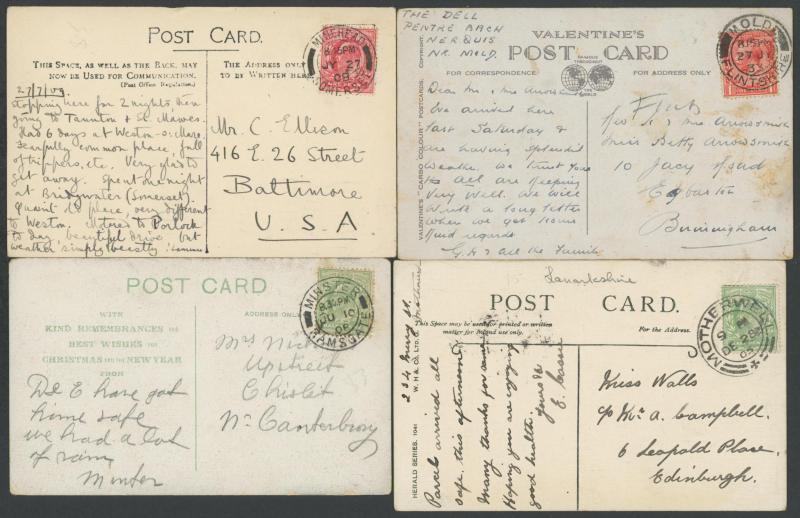 POST CARD.
THIS SPACE, AS WELL AS THE BACK, MAY
NOW BE USED FOR COMMUNICATION.
(Post Office Regulation)
THE ADDRESS ONLY
TO BE WRITTEN HERE
MINEHEAD
8.15PM
JY 27
09
SOMERSET
27/7/09.
Stopping here for 2 nights then
going to Taunton & St. Mawes.
Had 6 days at Weston-s-Mare.
Fearfully common place, full
of trippers, etc. Very glad to
get away. Spent one night
at Bridgwater (Somerset).
Quaint old place, very different
to Weston. Motored to Porlock
to day beautiful drive but
weather simply beastly.
Mr C. Ellison
416 E. 26 Street
Baltimore
U.S.A
THE DELL
PENTRE BACH
NERQUIS
NR. MOLD.
VALENTINE'S
POST CARD
FAMOUS
THROUGHOUT
THE WORLD
FOR CORRESPONDENCE
FOR ADDRESS ONLY
VALENTINE'S "CARBO COLOUR" POSTCARDS.
MOLD
8.15PM
27 JY
FLINTSHIRE
Dear Mr & Mrs
We arrived here
last Saturday &
are having splendid
weather. We trust you
are all keeping
Very Well. We will
Write a long letter
when we get home
kind regards
G.H & all the Family
Miss Betty Arrowsmith
10
Edgbaston
Birmingham
POST CARD
WITH
KIND REMEMBRANCES AND
BEST WISHES FOR
CHRISTMAS AND THE NEW YEAR
FROM
ADDRESS ONLY
MINSTER
8.30PM
JU 10
06
RAMSGATE
D E have got
home safe
we had a lot
of rain
Minter
Mrs
Upstreet
Chislet
Nr Canterbury
Lanarkshire
POST CARD.
This Space may be used for printed or written
matter for Inland use only.
For the Address.
HERALD SERIES. 1041
W. H. & Co. LTD. G.
MOTHERWELL
DE 28
Parcel arrived all
safe this afternoon.
Many thanks for same
Hoping you are enjoying
good health.
yours
E.
Miss Walls
c/o Mr A. Campbell.
6 Leopold Place,
Edinburgh.